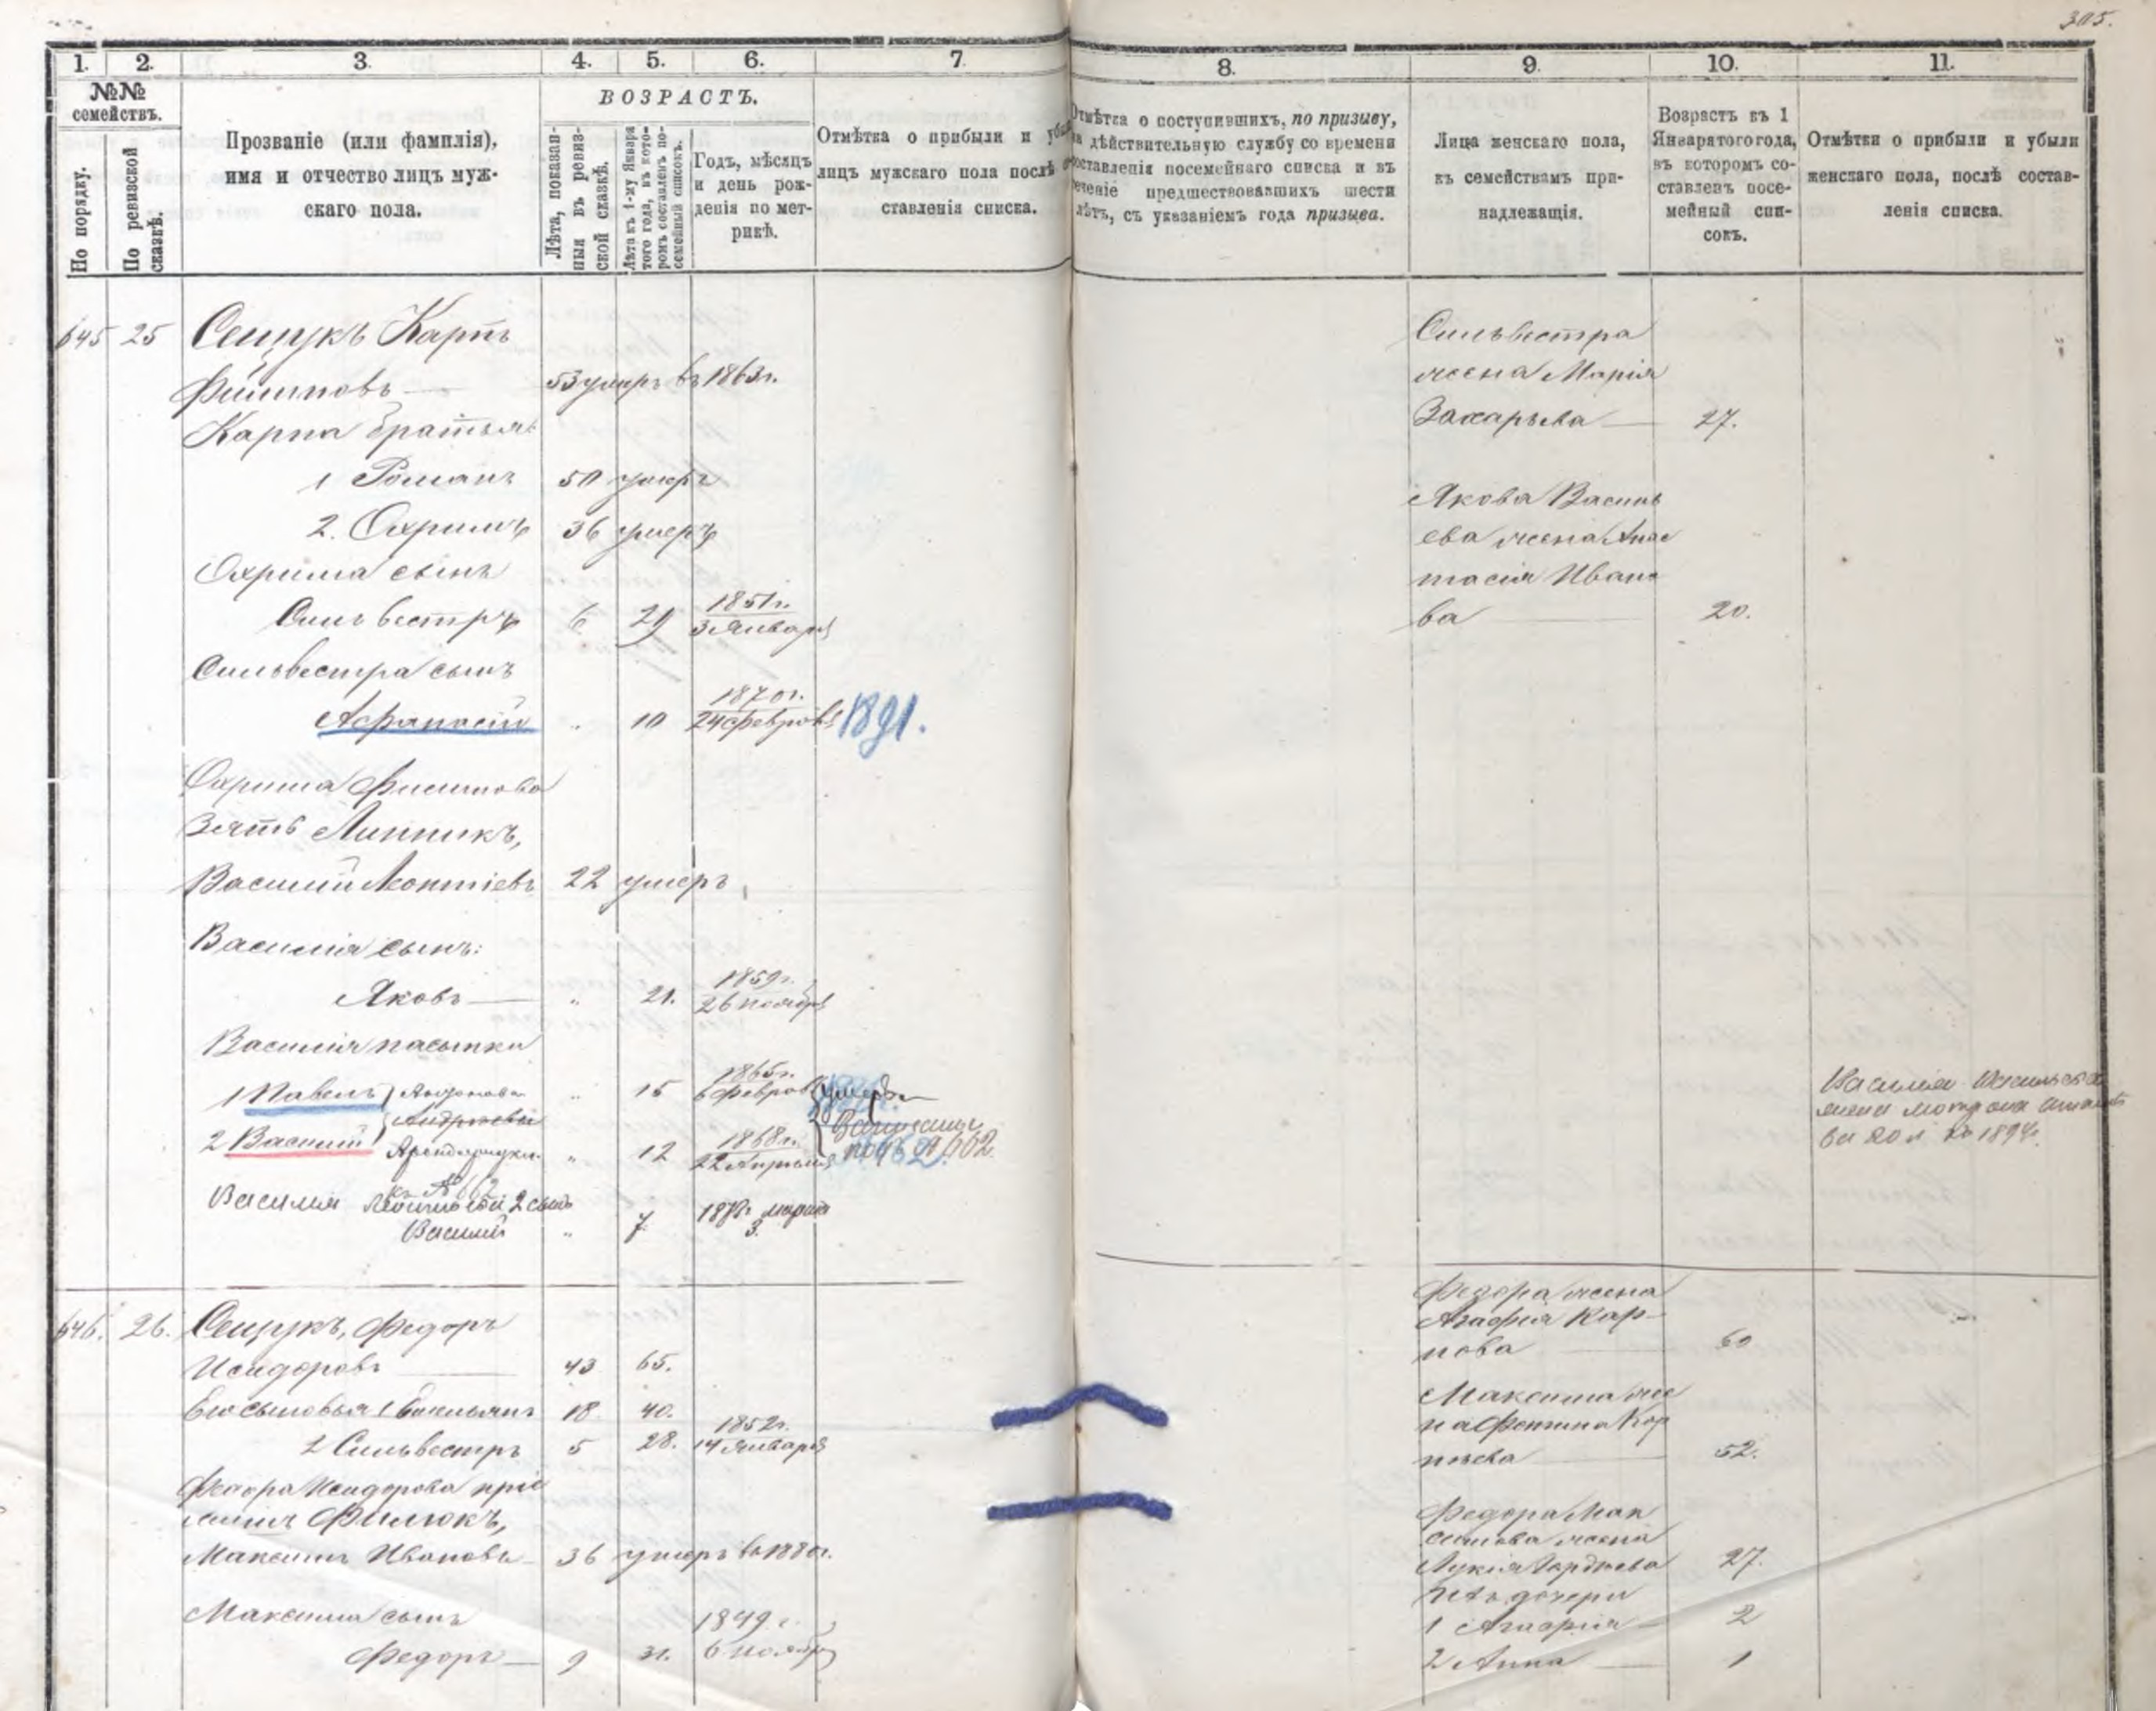 305.
1. 2. 3. 4. 5. 6. 7 8. 9. 10. 11.
№№ семействъ.
По порядку.
По ревизской сказкѣ.
Прозваніе (или фамилія),
имя и отчество лицъ муж-
скаго пола.
ВОЗРАСТЪ.
Лѣта, показан-
ныя въ ревиз-
ской сказкѣ.
Лѣта къ 1-му Января
того года, въ кото-
ромъ составленъ по-
семейный списокъ.
Годъ, мѣсяцъ
и день рож-
денія по мет-
рикѣ.
Отмѣтка о прибыли и
лицъ мужскаго пола послѣ
ставленія списка.
Отмѣтка о поступившихъ, по призыву,
дѣйствительную службу со времени
составленія посемейнаго списка и въ
теченіе предшествовавшихъ шести
лѣтъ, съ указаніемъ года призыва.
Лица женскаго пола,
къ семействамъ при-
надлежащія.
Возрастъ къ 1
Января того года,
въ которомъ со-
ставленъ посе-
мейный спи-
сокъ.
Отмѣтки о прибыли и убыли
женскаго пола, послѣ состав-
ленія списка.
645 25 Сещукъ Карпъ
Филиповъ 53 умеръ въ 1863 г.
Карпа братья:
1 Романъ 50 умеръ
2. Охримъ 36 умеръ
Охрима сынъ
Сильвестръ 6 29 1851 г. 3 Января
Сильвестра сынъ
Афанасій " 10 1870 г. 24 Февраля 1891.
Охрима Филипова
Зять Линникъ,
Василій Леонтіевъ 22 умеръ
Василія сынъ:
Яковъ " 21. 1859 г. 26 Ноября
Василія пасынки
1 Павелъ " 15 1865 г. 6 Февраля умеръ
2 Василій " 12 1868 г. 22 Апрѣля
подъ № 662.
Василія 2 сынъ
Василій " 7 марта 3.
Сильвестра
жена Марія
Захарьева 27.
Якова Василь
ева жена Анас
тасія Ивано
ва 20.
646. 26. Сещукъ, Федоръ
Исидоровъ 43 65.
Его сыновья 1 Емельянъ 18 40.
2 Сильвестръ 5 28. 1852 г. 14 Января
Федора Исидорова пріе
мышъ Филюкъ,
Максимъ Ивановъ 36 умеръ въ 1880 г.
Максима сынъ 1849 г.
Федоръ 9 31. 6 Ноября
Федора жена
Агафія Кар-
пова 60
Максима же
на Фетина
52.
Федора Мак
симова жена
Лукія Гордѣева 27.
Ихъ дочери
1 Агафія 2
2 Анна 1